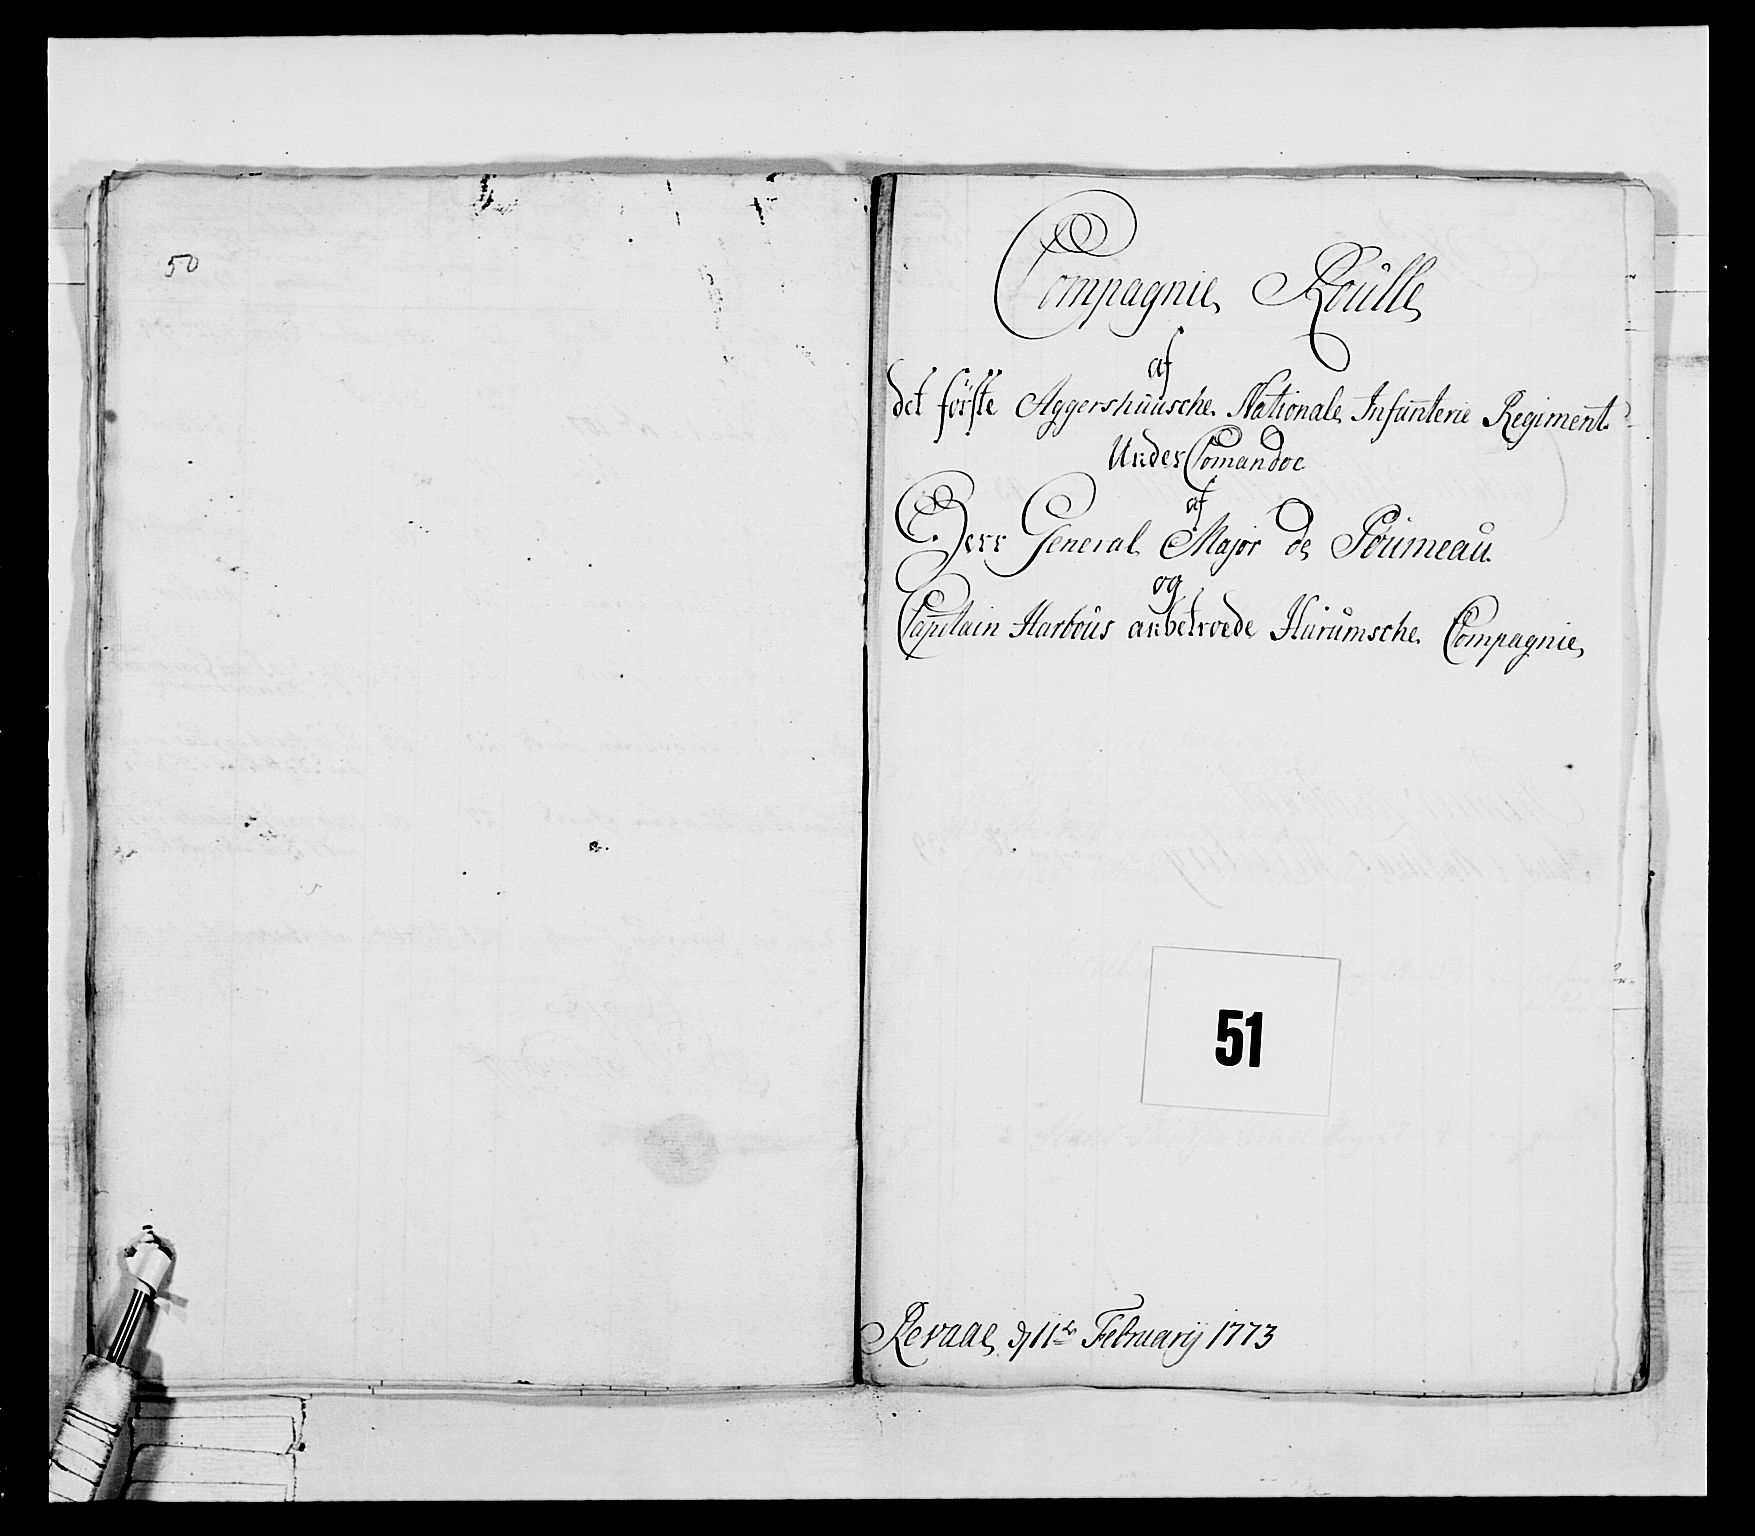 50
Compagnie Roülle
af
det förste Aggershuusche Nationale Infanterie Regiment
Under Comandoe
af
Herr General Major de Poumeau
og
Capitain Harboüs anbetroede Hürumsche Compagnie
51
Revaae d 11te Februarij 1773